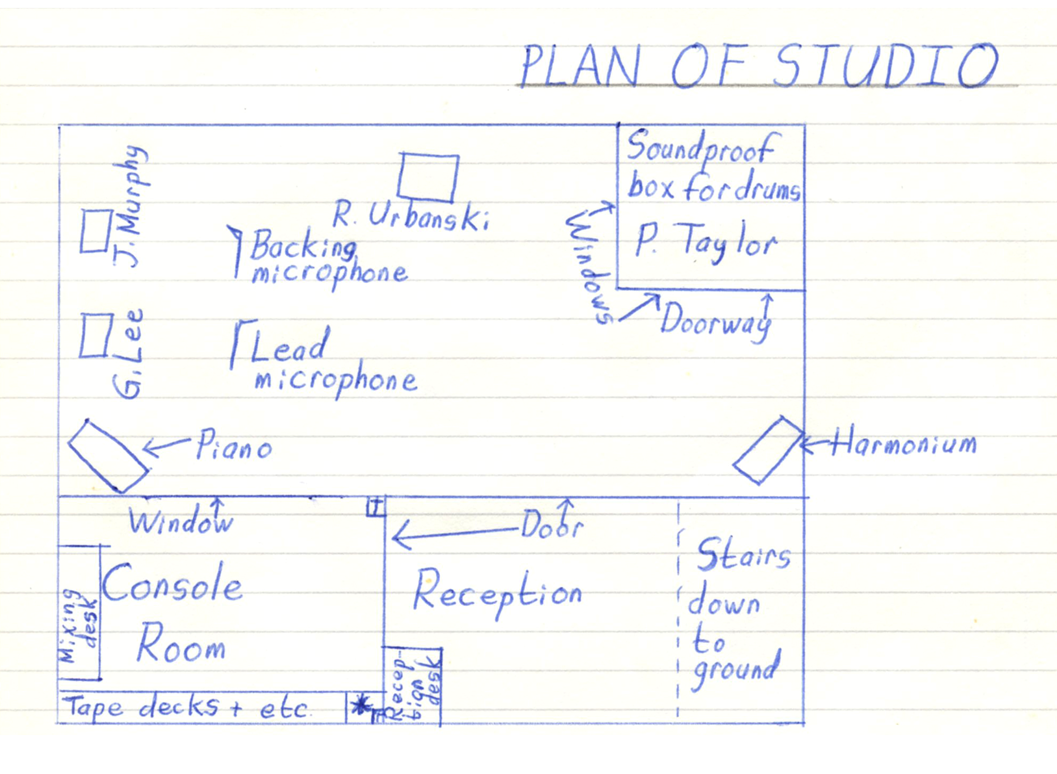 PLAN OF STUDIO
J. Murphy
R. Urbanski
Soundproof
box for drums
P. Taylor
Windows
Doorway
Backing
microphone
G. Lee
Lead
microphone
Piano
Harmonium
Window
Door
Console
Room
Mixing
desk
Reception
Stairs
down
to
ground
Tape decks + etc.
Recep-
tion
desk